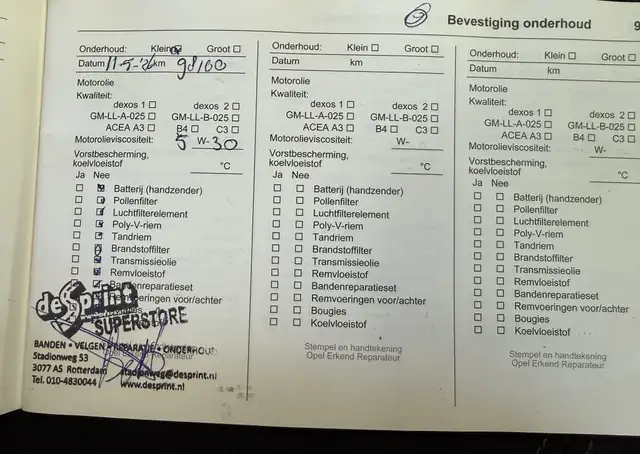 Bevestiging onderhoud
Onderhoud: Klein Groot
Datum 11-5-'26 km 98100
Motorolie
Kwaliteit:
dexos 1 dexos 2
GM-LL-A-025 GM-LL-B-025
ACEA A3 B4 C3
Motorolieviscositeit: 5 W-30
Vorstbescherming,
koelvloeistof °C
Ja Nee
Batterij (handzender)
Pollenfilter
Luchtfilterelement
Poly-V-riem
Tandriem
Brandstoffilter
Transmissieolie
Remvloeistof
Bandenreparatieset
Remvoeringen voor/achter
de Sprint
SUPERSTORE
BANDEN • VELGEN • REPARATIE • ONDERHOUD
Stadionweg 53
Opel Erkend Reparateur
3077 AS Rotterdam stadionweg@desprint.nl
Tel. 010-4830044 www.desprint.nl
Onderhoud: Klein Groot
Datum km
Motorolie
Kwaliteit:
dexos 1 dexos 2
GM-LL-A-025 GM-LL-B-025
ACEA A3 B4 C3
Motorolieviscositeit: W-
Vorstbescherming,
koelvloeistof °C
Ja Nee
Batterij (handzender)
Pollenfilter
Luchtfilterelement
Poly-V-riem
Tandriem
Brandstoffilter
Transmissieolie
Remvloeistof
Bandenreparatieset
Remvoeringen voor/achter
Bougies
Koelvloeistof
Stempel en handtekening
Opel Erkend Reparateur
Onderhoud: Klein Groot
Datum km
Motorolie
Kwaliteit:
dexos 1 dexos 2
GM-LL-A-025 GM-LL-B-025
ACEA A3 B4 C3
Motorolieviscositeit: W-
Vorstbescherming,
koelvloeistof °C
Ja Nee
Batterij (handzender)
Pollenfilter
Luchtfilterelement
Poly-V-riem
Tandriem
Brandstoffilter
Transmissieolie
Remvloeistof
Bandenreparatieset
Remvoeringen voor/achter
Bougies
Koelvloeistof
Stempel en handtekening
Opel Erkend Reparateur